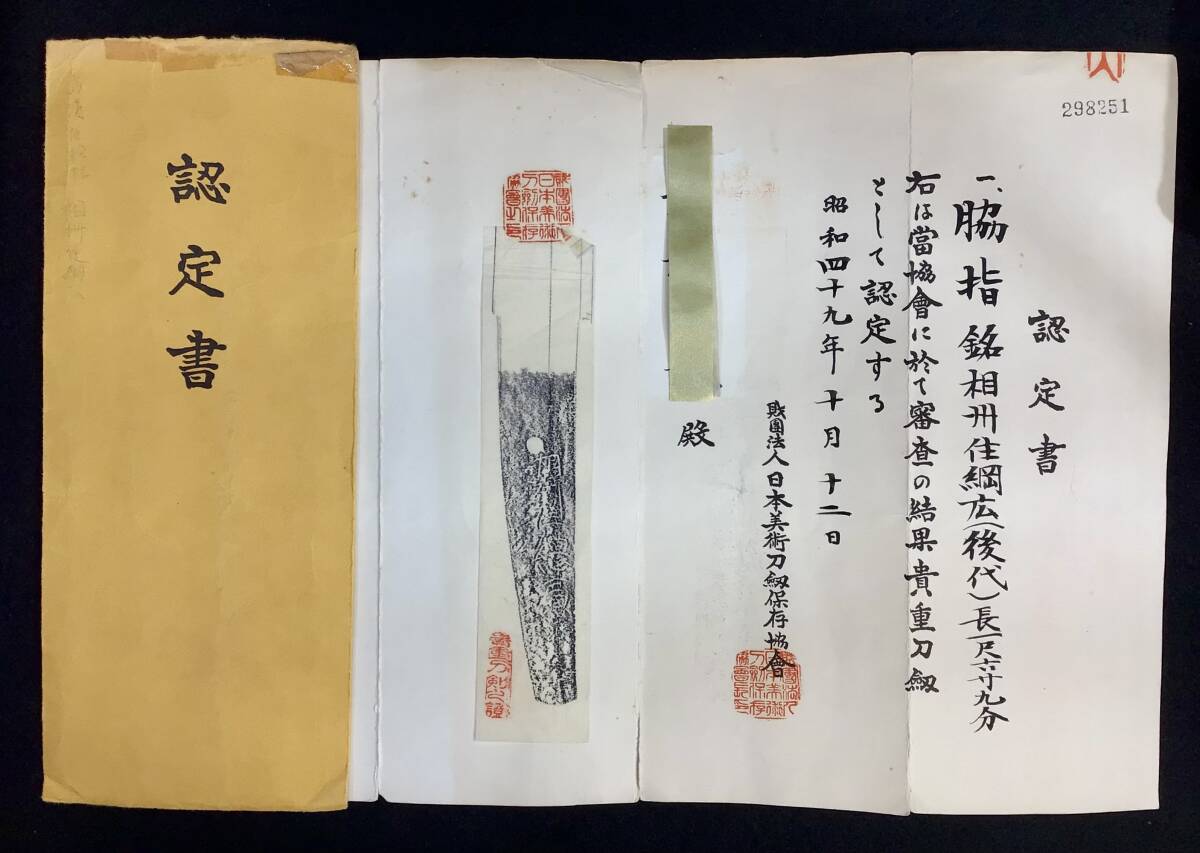 認定書
298251
認定書
一、脇指 銘相州住綱広(後代)長一尺六寸九分
右は當協會に於て審査の結果貴重刀剱
として認定する
昭和四十九年十月十二日
財團法人日本美術刀剱保存協會
殿